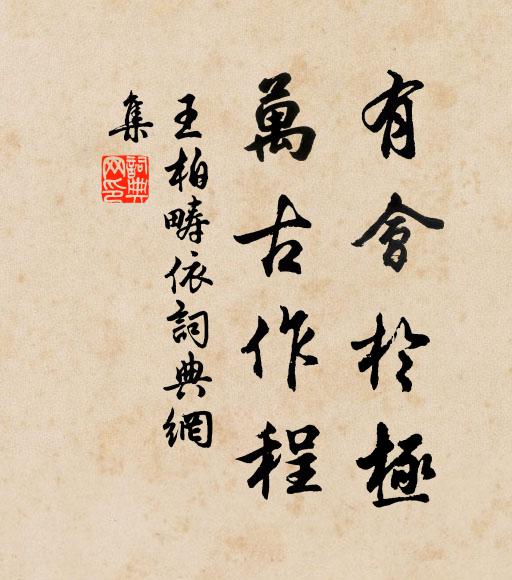 有會於極
萬古作程
王柏疇依詞典網
集
詞典
网印